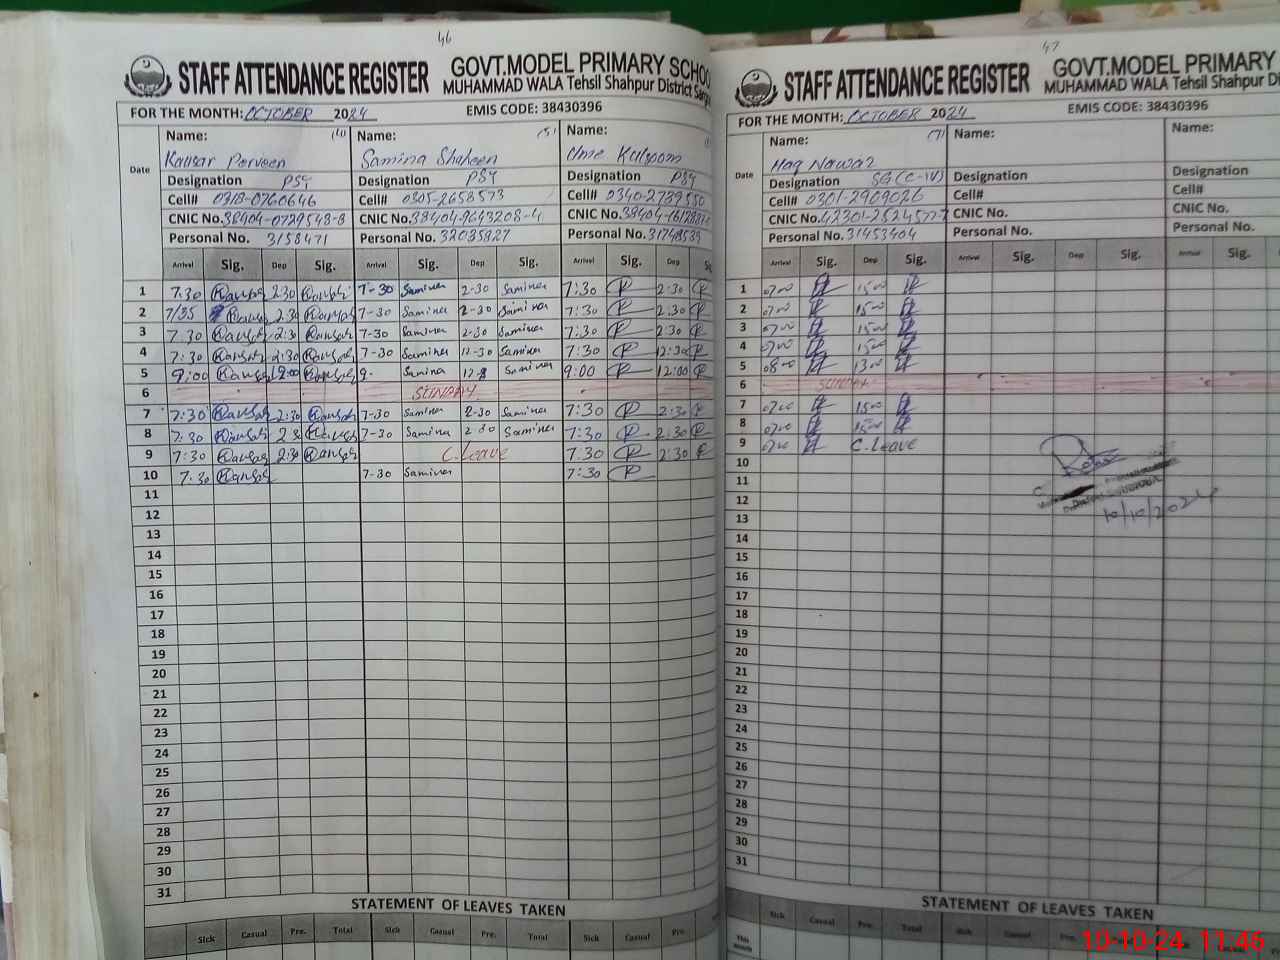 46
STAFF ATTENDANCE REGISTER
GOVT.MODEL PRIMARY SCHOO
MUHAMMAD WALA Tehsil Shahpur District Sargo
FOR THE MONTH: OCTOBER 2024 EMIS CODE: 38430396
Date
Name: Name: (5) Name:
Kausar Perveen Samina Shaheen Ume Kulsoom
Designation PST Designation PST Designation PST
Cell# 0318-0760646 Cell# 0305-2658573 Cell# 0340-2789550
CNIC No. 38404-0729548-8 CNIC No. 38404-9643208-4 CNIC No.
Personal No. 3158471 Personal No. 32035827 Personal No. 31748539
Arrival Sig. Dep Sig. Arrival Sig. Dep Sig. Arrival Sig. Dep
1 7:30 Kausar 2:30 Kausar 7-30 Samina 2-30 Samina 7:30 2:30
2 7/35 Kausar 2:30 Kausar 7-30 Samina 2-30 Samina 7:30 2:30
3 7:30 Kausar 2:30 Kausar 7-30 Samina 2-30 Samina 7:30 2:30
4 7:30 Kausar 2:30 Kausar 7-30 Samina 12-30 Samina 7:30 12:30
5 9:00 Kausar 12:00 Kausar 9- Samina Samina 9:00 12:00
6 SUNDAY
7 7:30 Kausar 2:30 Kausar 7-30 Samina 2-30 Samina 7:30 2:30
8 7:30 Kausar Kausar 7-30 Samina 2-30 Samina 7:30 2:30
9 7:30 Kausar 2:30 Kausar C.Leave 7:30 2:30
10 7:30 Kausar 7-30 Samina 7:30
11
12
13
14
15
16
17
18
19
20
21
22
23
24
25
26
27
28
29
30
31
STATEMENT OF LEAVES TAKEN
Sick Casual Pre. Total Sick Casual Pre. Total Sick Casual Pre.
47
STAFF ATTENDANCE REGISTER
GOVT.MODEL PRIMARY
MUHAMMAD WALA Tehsil Shahpur District
FOR THE MONTH: OCTOBER 2024 EMIS CODE: 38430396
Date
Name: (7) Name: Name:
Haq Nawaz
Designation SG (C-IV) Designation Designation
Cell# 0301-2909026 Cell# Cell#
CNIC No. 42301-2524577-7 CNIC No. CNIC No.
Personal No. 31453404 Personal No. Personal No.
Arrival Sig. Dep Sig. Arrival Sig. Dep Sig. Arrival Sig.
1 0700 1500
2 0700 1500
3 0700 1500
4 0700 1500
5 0800 1300
6 SUNDAY
7 0700 1500
8 0700 1500
9 0700 C.Leave
10
11
12
13
14
15
16
17
18
19
20
21
22
23
24
25
26
27
28
29
30
31
10/10/2024
STATEMENT OF LEAVES TAKEN
Sick Casual Pre. Total Sick Casual Pre. Total
This month
10-10-24 11:46